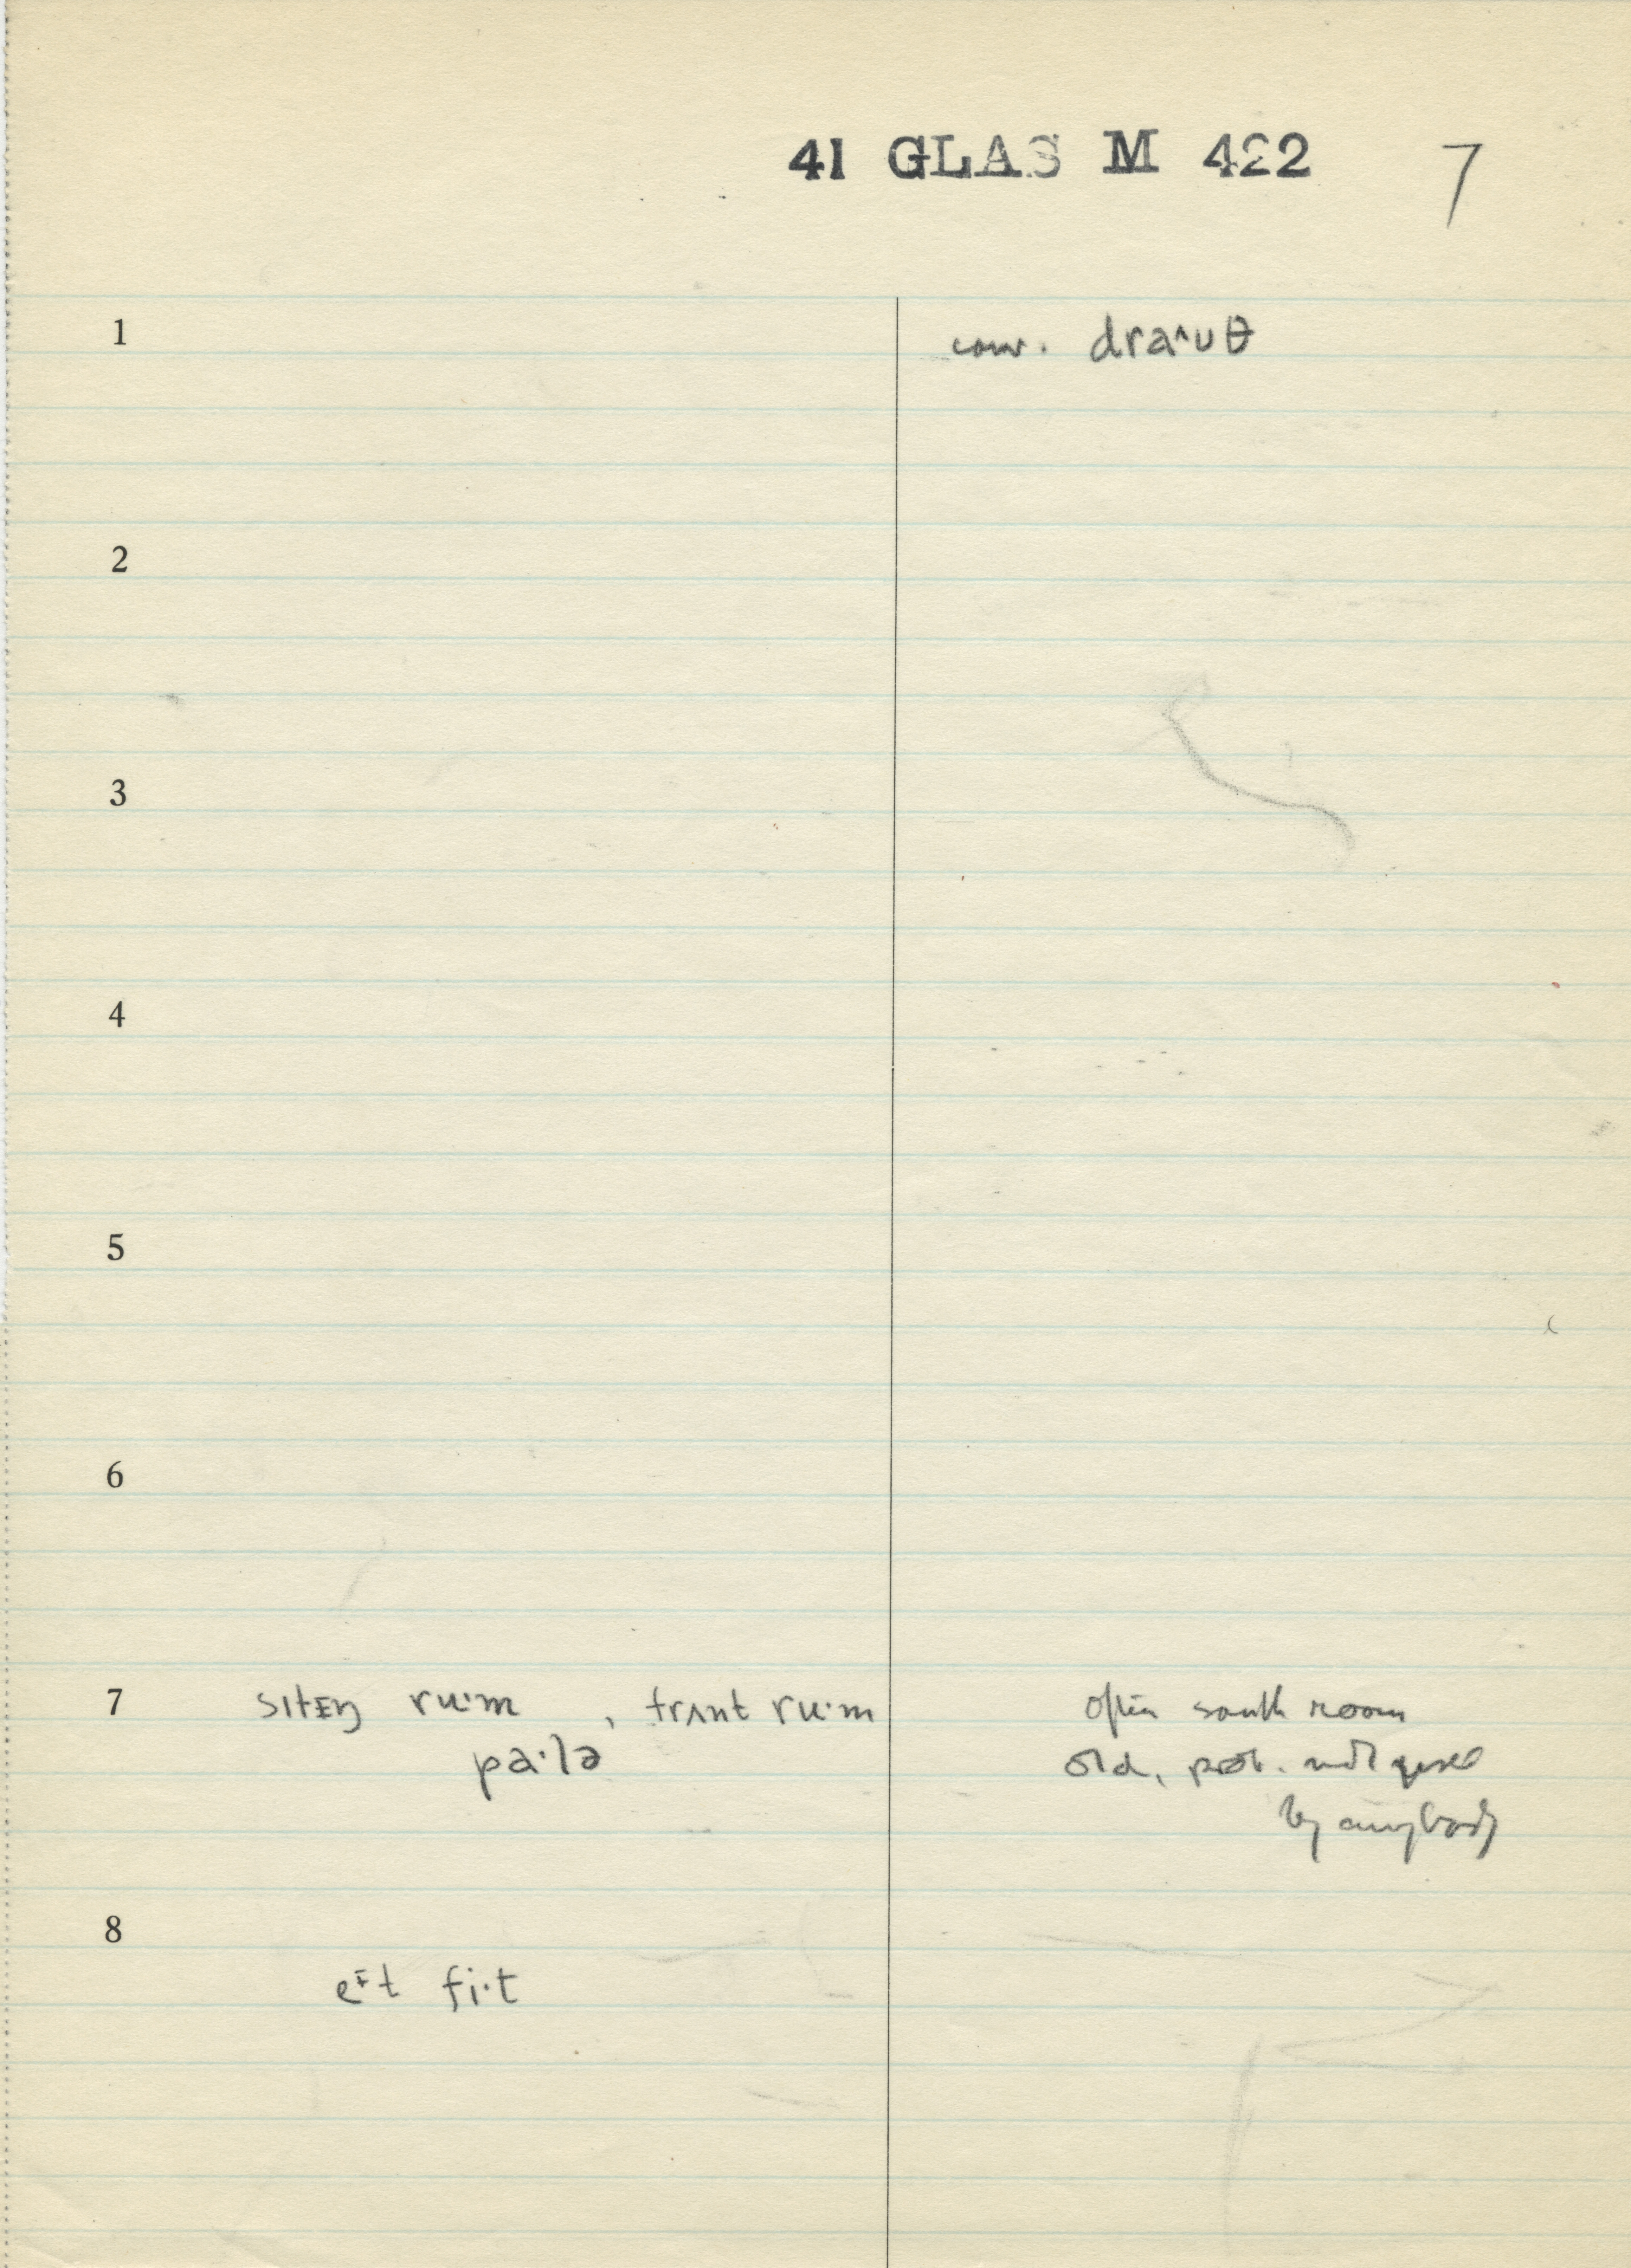 41 GLAS M 422 7
1 conv. draˆuθ
2
3
4
5
6
7 sɪtᵻŋ ru·m , frʌnt ru·m often south room
pa·lə old, prob. not used
by anybody
8
eᵻt fi·t